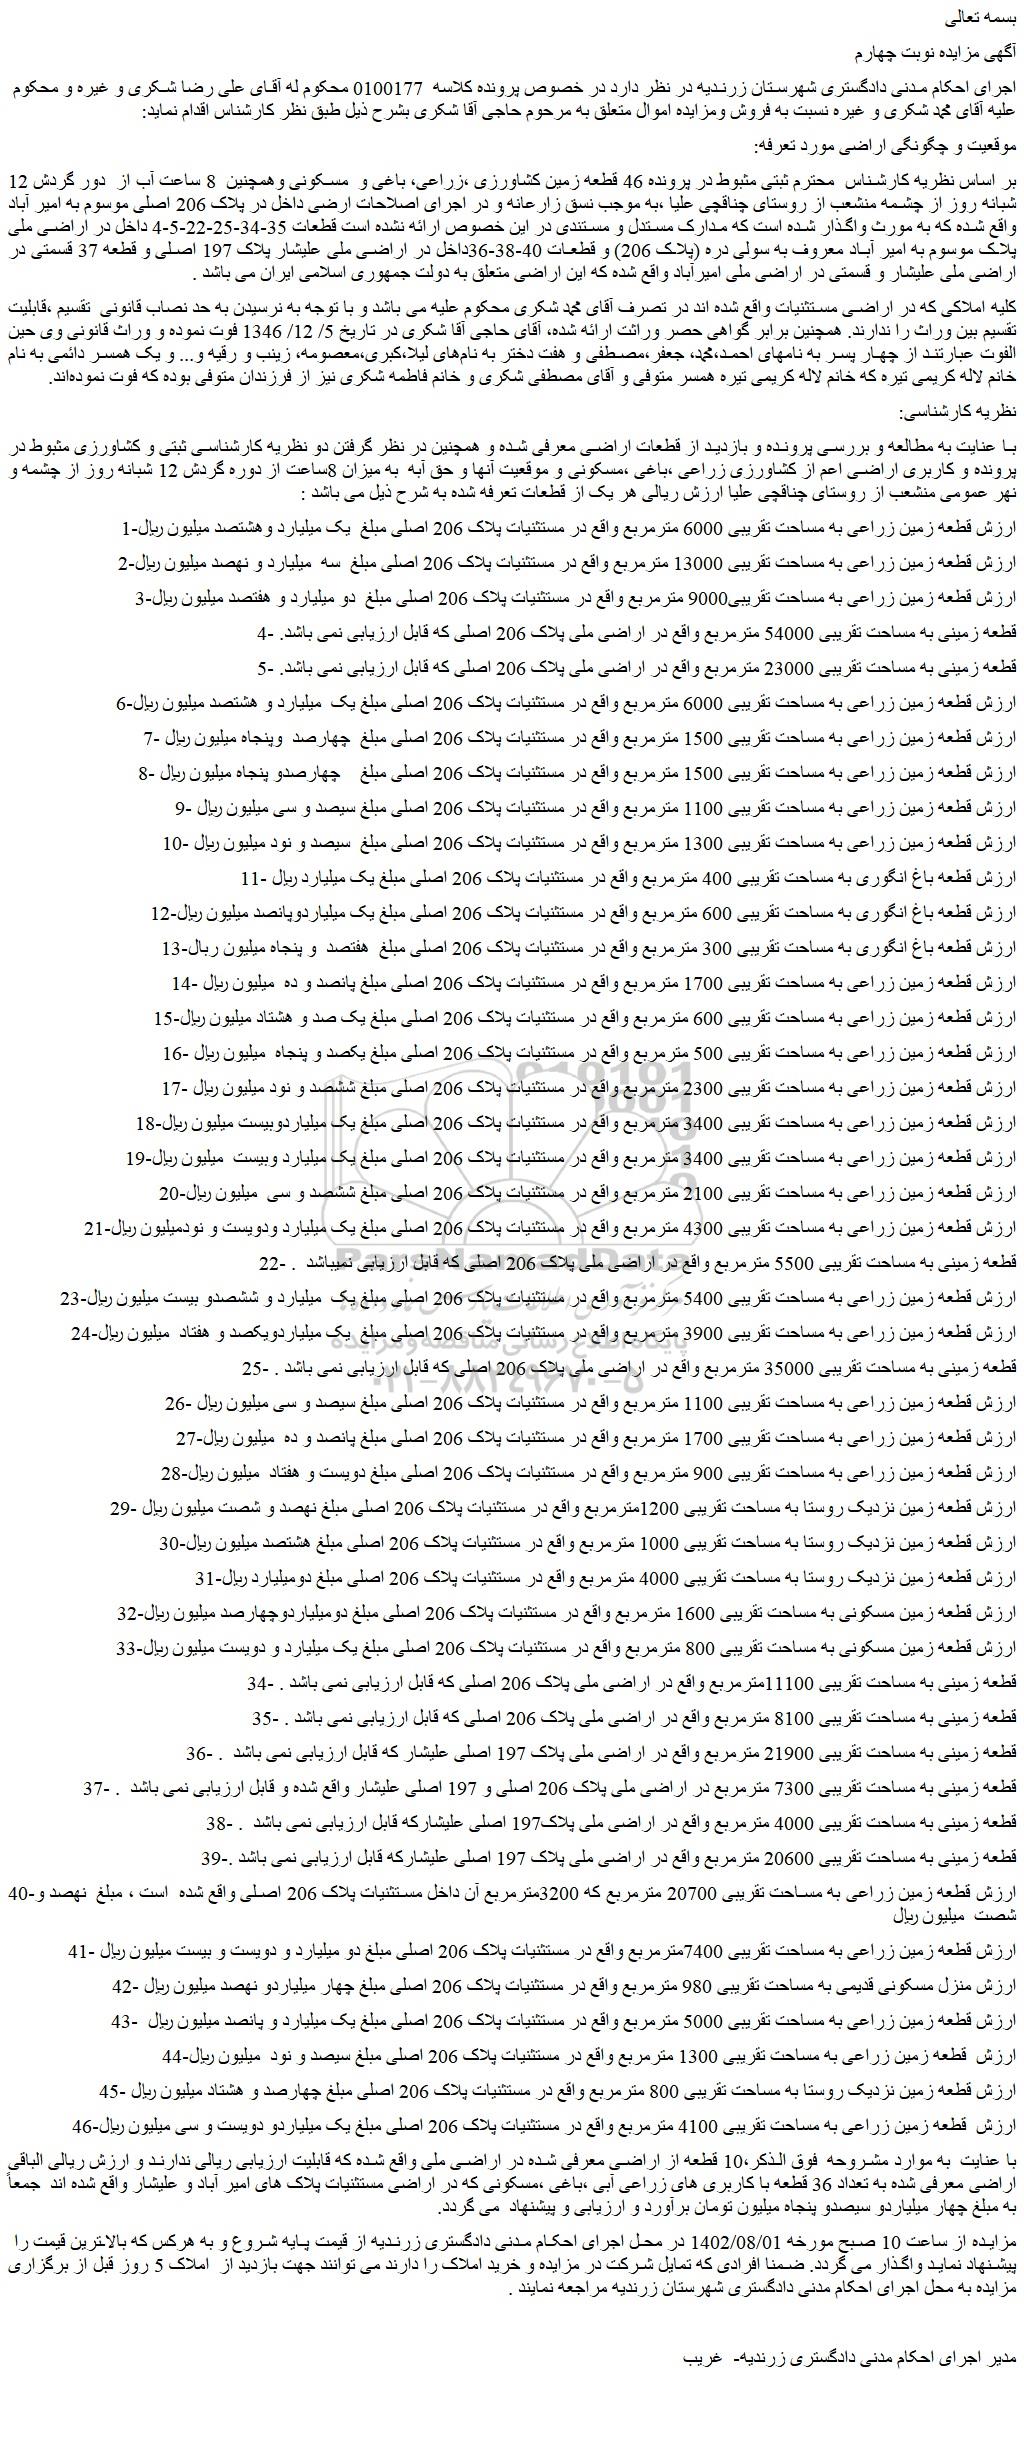 بسمه تعالی
آگهی مزایده نوبت چهارم
اجرای احکام مدنی دادگستری شهرستان زرندیه در نظر دارد در خصوص پرونده کلاسه 0100177 محکوم له آقای علی رضا شکری و غیره و محکوم
علیه آقای محمد شکری و غیره نسبت به فروش ومزایده اموال متعلق به مرحوم حاجی آقا شکری بشرح ذیل طبق نظر کارشناس اقدام نماید:
موقعیت و چگونگی اراضی مورد تعرفه:
بر اساس نظریه کارشناس محترم ثبتی مثبوط در پرونده 46 قطعه زمین کشاورزی ،زراعی، باغی و مسکونی وهمچنین 8 ساعت آب از دور گردش 12
شبانه روز از چشمه منشعب از روستای چناقچی علیا ،به موجب نسق زارعانه و در اجرای اصلاحات ارضی داخل در پلاک 206 اصلی موسوم به امیر آباد
واقع شده که به مورث واگذار شده است که مدارک مستدل و مستندی در این خصوص ارائه نشده است قطعات 35-34-25-22-5-4 داخل در اراضی ملی
پلاک موسوم به امیر آباد معروف به سولی دره (پلاک 206) و قطعات 40-38-36داخل در اراضی ملی علیشار پلاک 197 اصلی و قطعه 37 قسمتی در
اراضی ملی علیشار و قسمتی در اراضی ملی امیرآباد واقع شده که این اراضی متعلق به دولت جمهوری اسلامی ایران می باشد .
کلیه املاکی که در اراضی مستثنیات واقع شده اند در تصرف آقای محمد شکری محکوم علیه می باشد و با توجه به نرسیدن به حد نصاب قانونی تقسیم ،قابلیت
تقسیم بین وراث را ندارند. همچنین برابر گواهی حصر وراثت ارائه شده، آقای حاجی آقا شکری در تاریخ 5/ 12/ 1346 فوت نموده و وراث قانونی وی حین
الفوت عبارتند از چهار پسر به نامهای احمد،محمد، جعفر،مصطفی و هفت دختر به نام‌های لیلا،کبری،معصومه، زینب و رقیه و... و یک همسر دائمی به نام
خانم لاله کریمی تیره که خانم لاله کریمی تیره همسر متوفی و آقای مصطفی شکری و خانم فاطمه شکری نیز از فرزندان متوفی بوده که فوت نموده‌اند.
نظریه کارشناسی:
با عنایت به مطالعه و بررسی پرونده و بازدید از قطعات اراضی معرفی شده و همچنین در نظر گرفتن دو نظریه کارشناسی ثبتی و کشاورزی مثبوط در
پرونده و کاربری اراضی اعم از کشاورزی زراعی ،باغی ،مسکونی و موقعیت آنها و حق آبه به میزان 8ساعت از دوره گردش 12 شبانه روز از چشمه و
نهر عمومی منشعب از روستای چناقچی علیا ارزش ریالی هر یک از قطعات تعرفه شده به شرح ذیل می باشد :
ارزش قطعه زمین زراعی به مساحت تقریبی 6000 مترمربع واقع در مستثنیات پلاک 206 اصلی مبلغ یک میلیارد وهشتصد میلیون ریال-1
ارزش قطعه زمین زراعی به مساحت تقریبی 13000 مترمربع واقع در مستثنیات پلاک 206 اصلی مبلغ سه میلیارد و نهصد میلیون ریال-2
ارزش قطعه زمین زراعی به مساحت تقریبی9000 مترمربع واقع در مستثنیات پلاک 206 اصلی مبلغ دو میلیارد و هفتصد میلیون ریال-3
قطعه زمینی به مساحت تقریبی 54000 مترمربع واقع در اراضی ملی پلاک 206 اصلی که قابل ارزیابی نمی باشد. -4
قطعه زمینی به مساحت تقریبی 23000 مترمربع واقع در اراضی ملی پلاک 206 اصلی که قابل ارزیابی نمی باشد. -5
ارزش قطعه زمین زراعی به مساحت تقریبی 6000 مترمربع واقع در مستثنیات پلاک 206 اصلی مبلغ یک میلیارد و هشتصد میلیون ریال-6
ارزش قطعه زمین زراعی به مساحت تقریبی 1500 مترمربع واقع در مستثنیات پلاک 206 اصلی مبلغ چهارصد وپنجاه میلیون ریال -7
ارزش قطعه زمین زراعی به مساحت تقریبی 1500 مترمربع واقع در مستثنیات پلاک 206 اصلی مبلغ چهارصدو پنجاه میلیون ریال -8
ارزش قطعه زمین زراعی به مساحت تقریبی 1100 مترمربع واقع در مستثنیات پلاک 206 اصلی مبلغ سیصد و سی میلیون ریال -9
ارزش قطعه زمین زراعی به مساحت تقریبی 1300 مترمربع واقع در مستثنیات پلاک 206 اصلی مبلغ سیصد و نود میلیون ریال -10
ارزش قطعه باغ انگوری به مساحت تقریبی 400 مترمربع واقع در مستثنیات پلاک 206 اصلی مبلغ یک میلیارد ریال -11
ارزش قطعه باغ انگوری به مساحت تقریبی 600 مترمربع واقع در مستثنیات پلاک 206 اصلی مبلغ یک میلیاردوپانصد میلیون ریال-12
ارزش قطعه باغ انگوری به مساحت تقریبی 300 مترمربع واقع در مستثنیات پلاک 206 اصلی مبلغ هفتصد و پنجاه میلیون ریال-13
ارزش قطعه زمین زراعی به مساحت تقریبی 1700 مترمربع واقع در مستثنیات پلاک 206 اصلی مبلغ پانصد و ده میلیون ریال -14
ارزش قطعه زمین زراعی به مساحت تقریبی 600 مترمربع واقع در مستثنیات پلاک 206 اصلی مبلغ یک صد و هشتاد میلیون ریال-15
ارزش قطعه زمین زراعی به مساحت تقریبی 500 مترمربع واقع در مستثنیات پلاک 206 اصلی مبلغ یکصد و پنجاه میلیون ریال -16
ارزش قطعه زمین زراعی به مساحت تقریبی 2300 مترمربع واقع در مستثنیات پلاک 206 اصلی مبلغ ششصد و نود میلیون ریال -17
ارزش قطعه زمین زراعی به مساحت تقریبی 3400 مترمربع واقع در مستثنیات پلاک 206 اصلی مبلغ یک میلیاردوبیست میلیون ریال-18
ارزش قطعه زمین زراعی به مساحت تقریبی 3400 مترمربع واقع در مستثنیات پلاک 206 اصلی مبلغ یک میلیارد وبیست میلیون ریال-19
ارزش قطعه زمین زراعی به مساحت تقریبی 2100 مترمربع واقع در مستثنیات پلاک 206 اصلی مبلغ ششصد و سی میلیون ریال-20
ارزش قطعه زمین زراعی به مساحت تقریبی 4300 مترمربع واقع در مستثنیات پلاک 206 اصلی مبلغ یک میلیارد ودویست و نودمیلیون ریال-21
قطعه زمینی به مساحت تقریبی 5500 مترمربع واقع در اراضی ملی پلاک 206 اصلی که قابل ارزیابی نمیباشد . -22
ParsNamadData
ارزش قطعه زمین زراعی به مساحت تقریبی 5400 مترمربع واقع در مستثنیات پلاک 206 اصلی مبلغ یک میلیارد و ششصدو بیست میلیون ریال-23
ارزش قطعه زمین زراعی به مساحت تقریبی 3900 مترمربع واقع در مستثنیات پلاک 206 اصلی مبلغ یک میلیاردویکصد و هفتاد میلیون ریال-24
پایگاه اطلاع رسانی مناقصه و مزایده
قطعه زمینی به مساحت تقریبی 35000 مترمربع واقع در اراضی ملی پلاک 206 اصلی که قابل ارزیابی نمی باشد . -25
۰۲۱-۸۸۳۴۹۶۷۰-۵
ارزش قطعه زمین زراعی به مساحت تقریبی 1100 مترمربع واقع در مستثنیات پلاک 206 اصلی مبلغ سیصد و سی میلیون ریال -26
ارزش قطعه زمین زراعی به مساحت تقریبی 1700 مترمربع واقع در مستثنیات پلاک 206 اصلی مبلغ پانصد و ده میلیون ریال-27
ارزش قطعه زمین زراعی به مساحت تقریبی 900 مترمربع واقع در مستثنیات پلاک 206 اصلی مبلغ دویست و هفتاد میلیون ریال-28
ارزش قطعه زمین نزدیک روستا به مساحت تقریبی 1200مترمربع واقع در مستثنیات پلاک 206 اصلی مبلغ نهصد و شصت میلیون ریال -29
ارزش قطعه زمین نزدیک روستا به مساحت تقریبی 1000 مترمربع واقع در مستثنیات پلاک 206 اصلی مبلغ هشتصد میلیون ریال-30
ارزش قطعه زمین نزدیک روستا به مساحت تقریبی 4000 مترمربع واقع در مستثنیات پلاک 206 اصلی مبلغ دومیلیارد ریال-31
ارزش قطعه زمین مسکونی به مساحت تقریبی 1600 مترمربع واقع در مستثنیات پلاک 206 اصلی مبلغ دومیلیاردوچهارصد میلیون ریال-32
ارزش قطعه زمین مسکونی به مساحت تقریبی 800 مترمربع واقع در مستثنیات پلاک 206 اصلی مبلغ یک میلیارد و دویست میلیون ریال-33
قطعه زمینی به مساحت تقریبی 11100مترمربع واقع در اراضی ملی پلاک 206 اصلی که قابل ارزیابی نمی باشد . -34
قطعه زمینی به مساحت تقریبی 8100 مترمربع واقع در اراضی ملی پلاک 206 اصلی که قابل ارزیابی نمی باشد . -35
قطعه زمینی به مساحت تقریبی 21900 مترمربع واقع در اراضی ملی پلاک 197 اصلی علیشار که قابل ارزیابی نمی باشد . -36
قطعه زمینی به مساحت تقریبی 7300 مترمربع در اراضی ملی پلاک 206 اصلی و 197 اصلی علیشار واقع شده و قابل ارزیابی نمی باشد . -37
قطعه زمینی به مساحت تقریبی 4000 مترمربع واقع در اراضی ملی پلاک197 اصلی علیشارکه قابل ارزیابی نمی باشد . -38
قطعه زمینی به مساحت تقریبی 20600 مترمربع واقع در اراضی ملی پلاک 197 اصلی علیشارکه قابل ارزیابی نمی باشد .-39
ارزش قطعه زمین زراعی به مساحت تقریبی 20700 مترمربع که 3200مترمربع آن داخل مستثنیات پلاک 206 اصلی واقع شده است ، مبلغ نهصد و-40
شصت میلیون ریال
ارزش قطعه زمین زراعی به مساحت تقریبی 7400مترمربع واقع در مستثنیات پلاک 206 اصلی مبلغ دو میلیارد و دویست و بیست میلیون ریال -41
ارزش منزل مسکونی قدیمی به مساحت تقریبی 980 مترمربع واقع در مستثنیات پلاک 206 اصلی مبلغ چهار میلیاردو نهصد میلیون ریال -42
ارزش قطعه زمین زراعی به مساحت تقریبی 5000 مترمربع واقع در مستثنیات پلاک 206 اصلی مبلغ یک میلیارد و پانصد میلیون ریال -43
ارزش قطعه زمین زراعی به مساحت تقریبی 1300 مترمربع واقع در مستثنیات پلاک 206 اصلی مبلغ سیصد و نود میلیون ریال-44
ارزش قطعه زمین نزدیک روستا به مساحت تقریبی 800 مترمربع واقع در مستثنیات پلاک 206 اصلی مبلغ چهارصد و هشتاد میلیون ریال -45
ارزش قطعه زمین زراعی به مساحت تقریبی 4100 مترمربع واقع در مستثنیات پلاک 206 اصلی مبلغ یک میلیاردو دویست و سی میلیون ریال-46
با عنایت به موارد مشروحه فوق الذکر،10 قطعه از اراضی معرفی شده در اراضی ملی واقع شده که قابلیت ارزیابی ریالی ندارند و ارزش ریالی الباقی
اراضی معرفی شده به تعداد 36 قطعه با کاربری های زراعی آبی ،باغی ،مسکونی که در اراضی مستثنیات پلاک های امیر آباد و علیشار واقع شده اند جمعاً
به مبلغ چهار میلیاردو سیصدو پنجاه میلیون تومان برآورد و ارزیابی و پیشنهاد می گردد.
مزایده از ساعت 10 صبح مورخه 1402/08/01 در محل اجرای احکام مدنی دادگستری زرندیه از قیمت پایه شروع و به هرکس که بالاترین قیمت را
پیشنهاد نماید واگذار می گردد. ضمنا افرادی که تمایل شرکت در مزایده و خرید املاک را دارند می توانند جهت بازدید از املاک 5 روز قبل از برگزاری
مزایده به محل اجرای احکام مدنی دادگستری شهرستان زرندیه مراجعه نمایند .
مدیر اجرای احکام مدنی دادگستری زرندیه- غریب